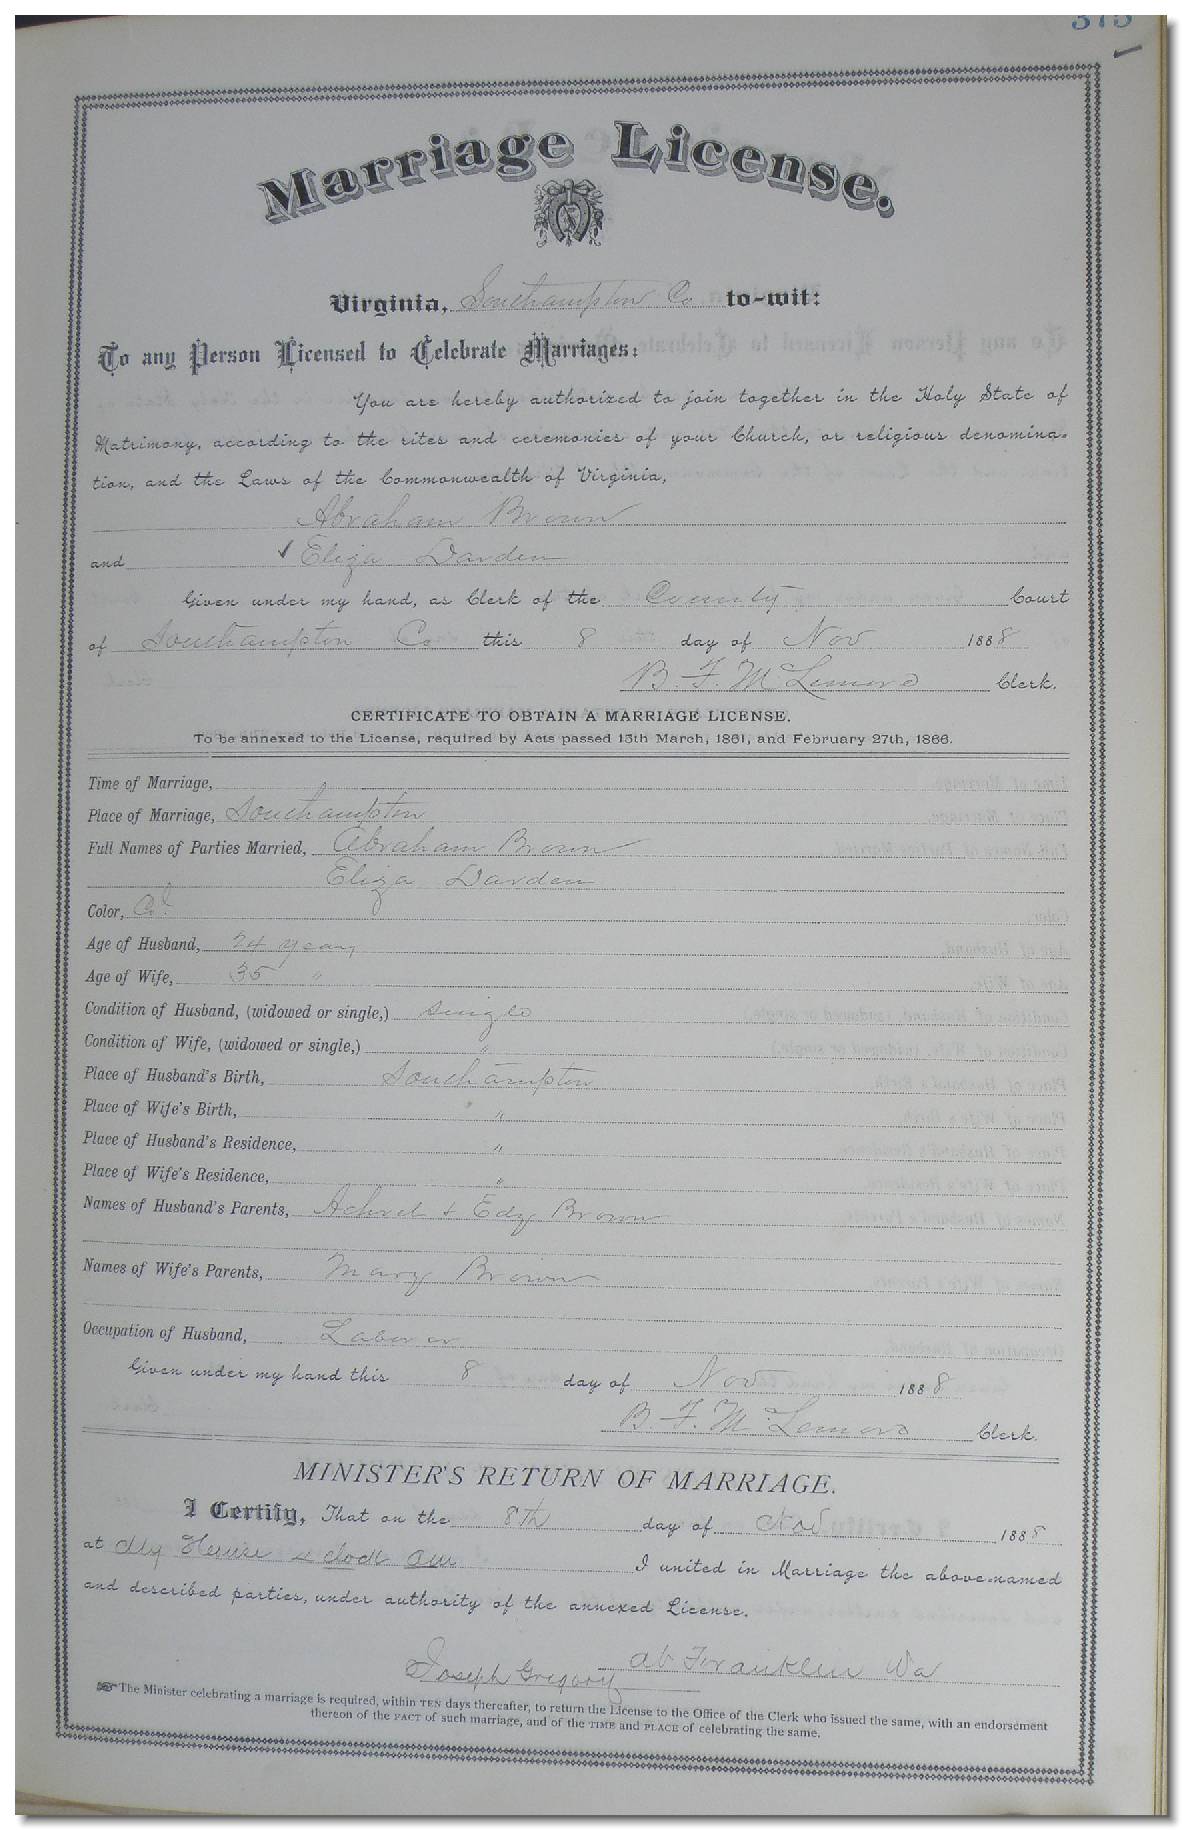 375
Marriage License.
Virginia, Southampton Co to-wit:
To any Person Licensed to Celebrate Marriages:
You are hereby authorized to join together in the Holy State of
Matrimony, according to the rites and ceremonies of your Church, or religious denomina-
tion, and the Laws of the Commonwealth of Virginia,
Abraham Brown
and Eliza Darden
Given under my hand, as Clerk of the County Court
of Southampton Co this 8 day of Nov 1888
B. F. McLemore Clerk.
CERTIFICATE TO OBTAIN A MARRIAGE LICENSE.
To be annexed to the License, required by Acts passed 15th March, 1861, and February 27th, 1866.
Time of Marriage,
Place of Marriage, Southampton
Full Names of Parties Married, Abraham Brown
Eliza Darden
Color, Col
Age of Husband, 24 years
Age of Wife, 35 "
Condition of Husband, (widowed or single,) single
Condition of Wife, (widowed or single,) "
Place of Husband's Birth, Southampton
Place of Wife's Birth, "
Place of Husband's Residence, "
Place of Wife's Residence, "
Names of Husband's Parents, & Edy Brown
Names of Wife's Parents, Mary Brown
Occupation of Husband, Laborer
Given under my hand this 8 day of Nov 1888
B. F. McLemore Clerk.
MINISTER'S RETURN OF MARRIAGE.
I Certify, That on the 8th day of Nov 1888
at My House clock I united in Marriage the above-named
and described parties, under authority of the annexed License.
at Franklin Va
Joseph Gregory
The Minister celebrating a marriage is required, within TEN days thereafter, to return the License to the Office of the Clerk who issued the same, with an endorsement
thereon of the FACT of such marriage, and of the TIME and PLACE of celebrating the same.